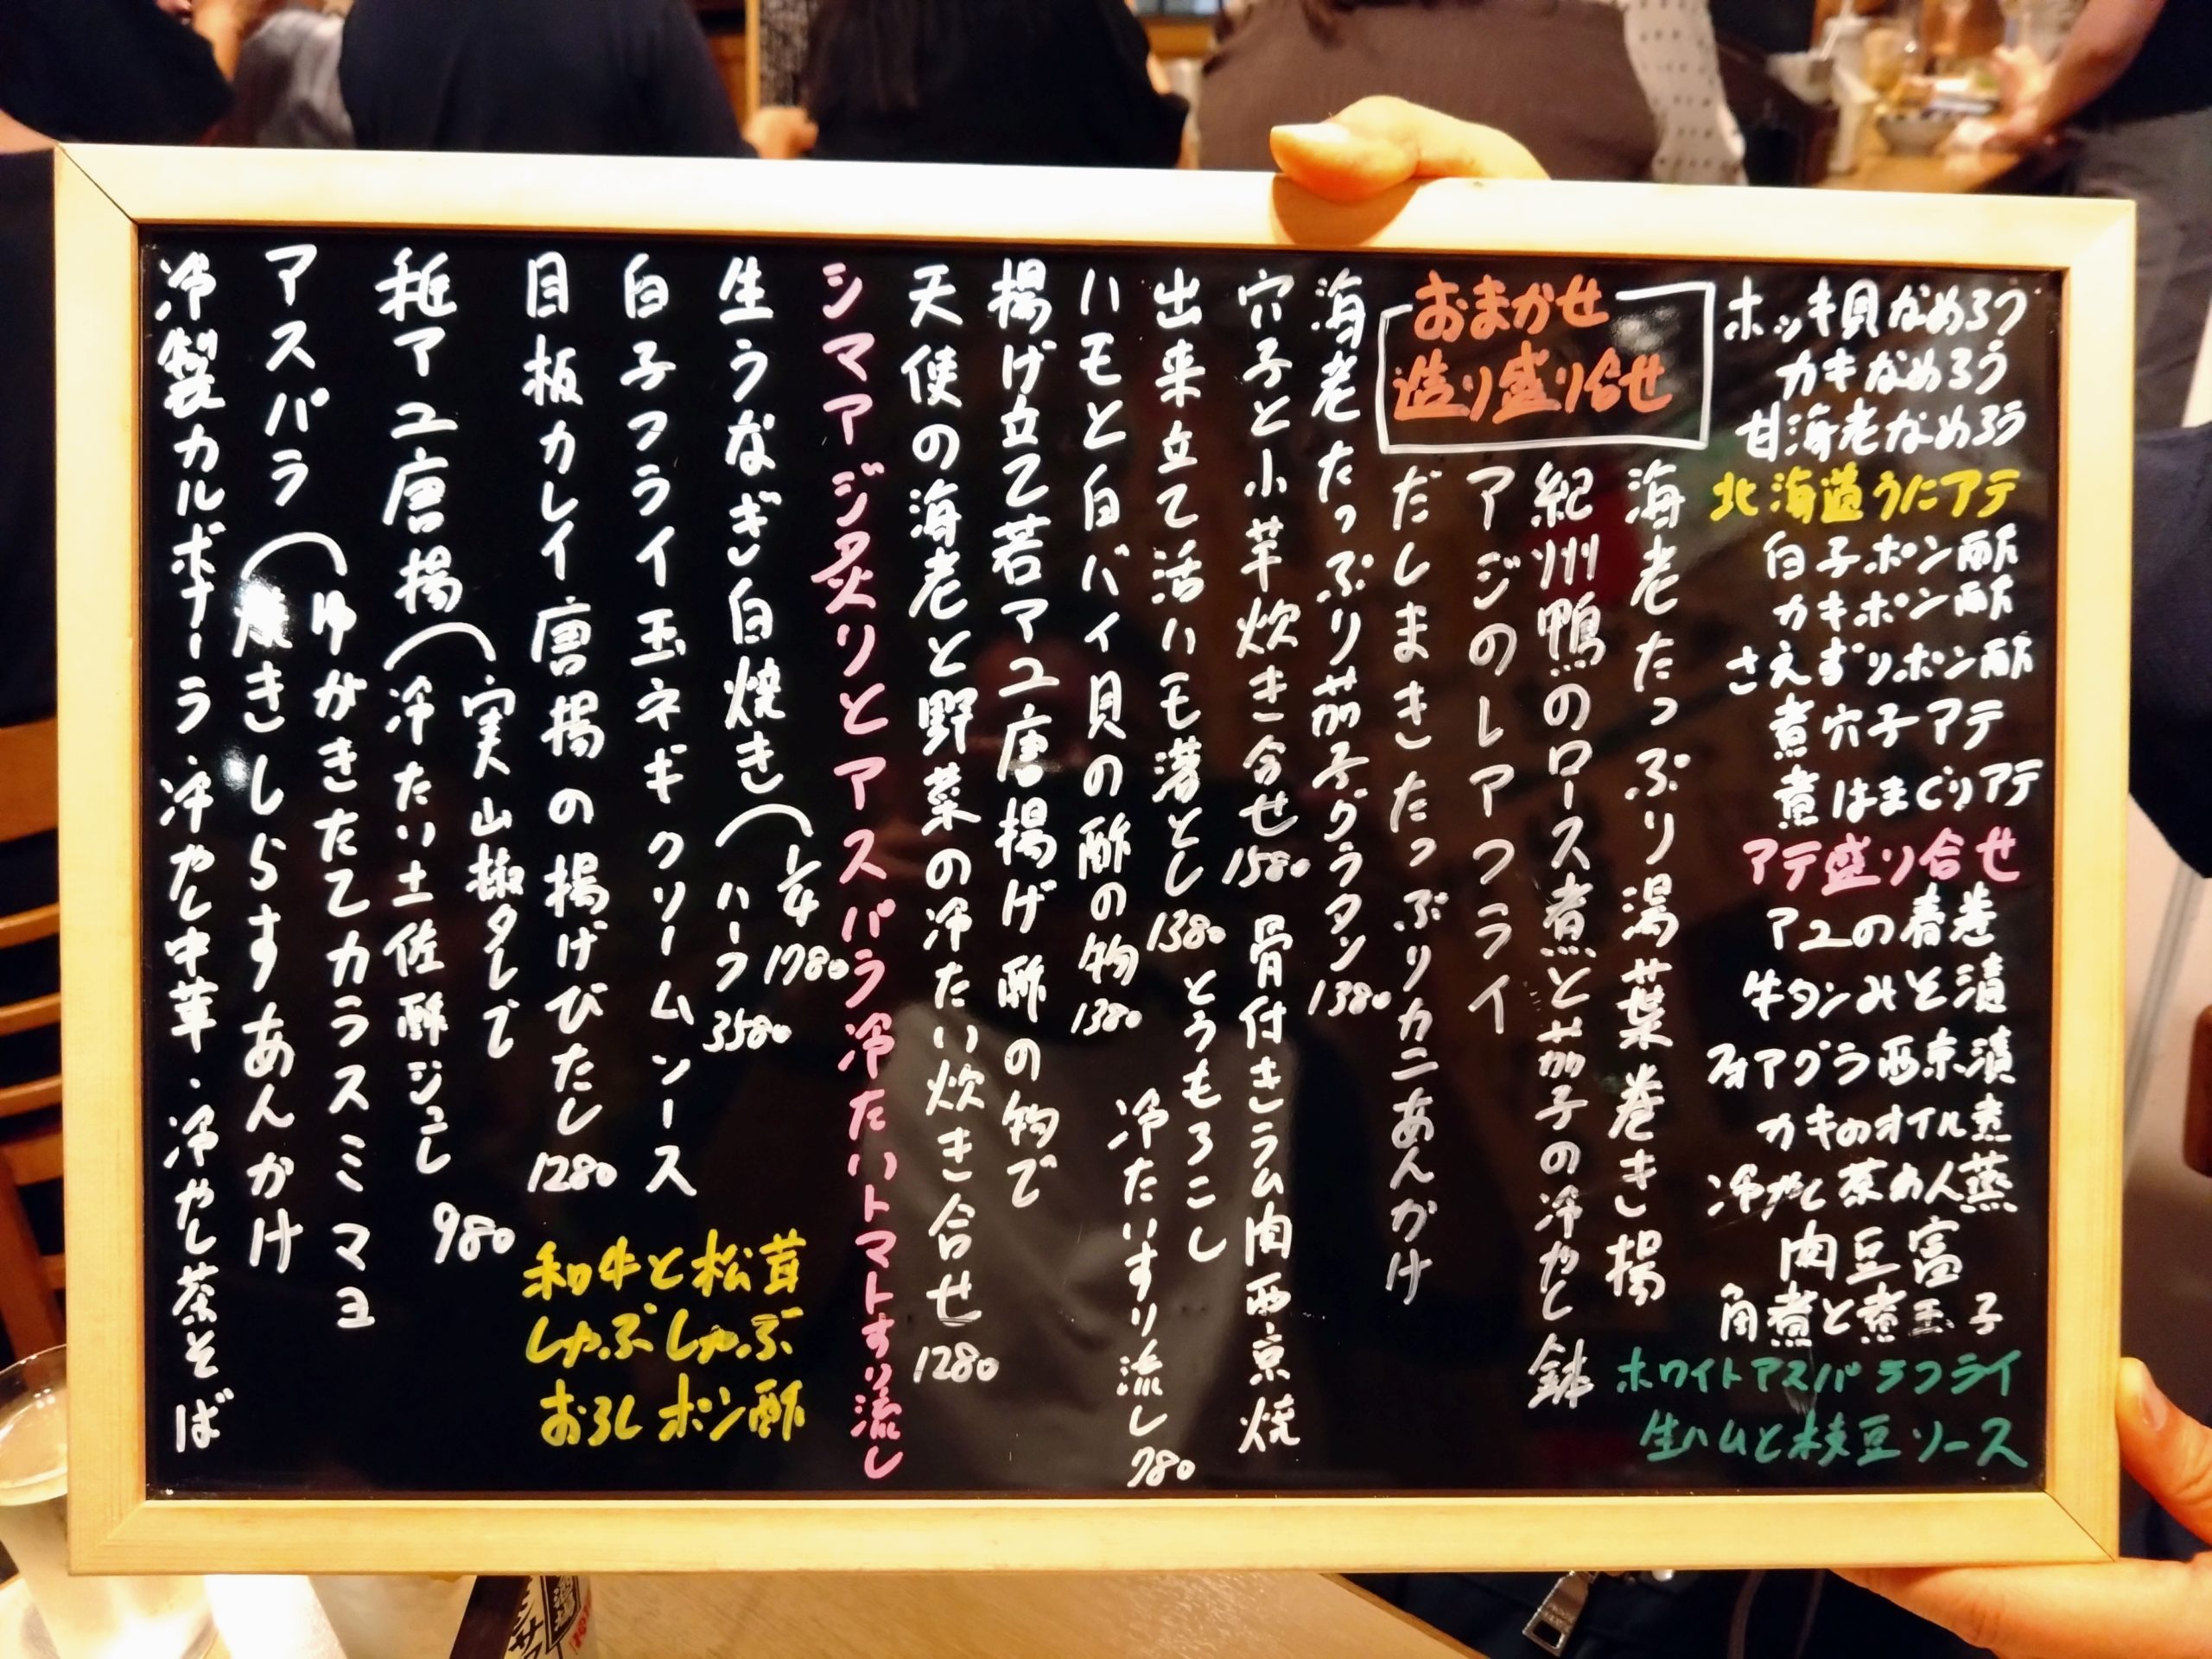 ホッキ貝なめろう
カキなめろう
甘海老なめろう
北海道うにアテ
白子ポン酢
カキポン酢
さえずりポン酢
煮穴子アテ
煮はまぐりアテ
アテ盛り合せ
アユの春巻
牛タンみそ漬
フォアグラ西京漬
カキのオイル煮
冷やし茶わん蒸
肉豆富
角煮と煮玉子
ホワイトアスパラフライ
生ハムと枝豆ソース
おまかせ
造り盛り合せ
海老たっぷり湯葉巻き揚
紀州鴨のロース煮と茄子の冷やし鉢
アジのレアフライ
だしまきたっぷりカニあんかけ
海老たっぷり茄子グラタン1380
穴子と小芋炊き合せ1580
骨付きラム肉西京焼
出来立て活ハモ落とし1380
とうもろこし
冷たいすり流し780
ハモと白バイ貝の酢の物1380
揚げ立て若アユ唐揚げ酢の物で
天使の海老と野菜の冷たい炊き合せ1280
シマアジ炙りとアスパラ冷たいトマトすり流し
生うなぎ白焼き
1/4 1780
ハーフ3580
白子フライ玉ネギクリームソース
目板カレイ唐揚の揚げびたし1280
和牛と松茸
しゃぶしゃぶ
おろしポン酢
稚アユ唐揚
実山椒タレで
冷たい土佐酢ジュレ
980
アスパラ
ゆがきたてカラスミマヨ
焼きしらすあんかけ
冷製カルボナーラ・冷やし中華・冷やし茶そば